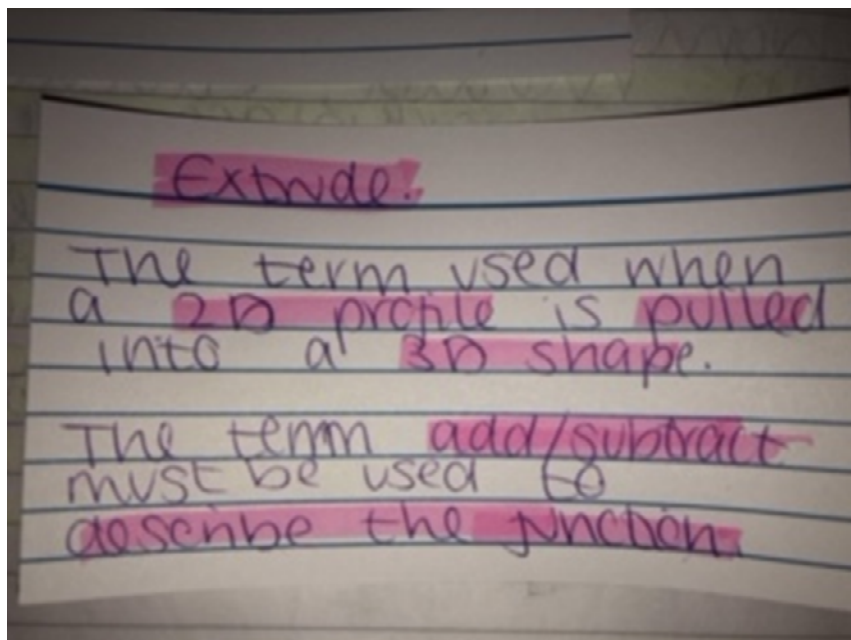 Extrude.
The term used when
a 2D profile is pulled
into a 3D shape.
The term add/subtract
must be used to
describe the function.